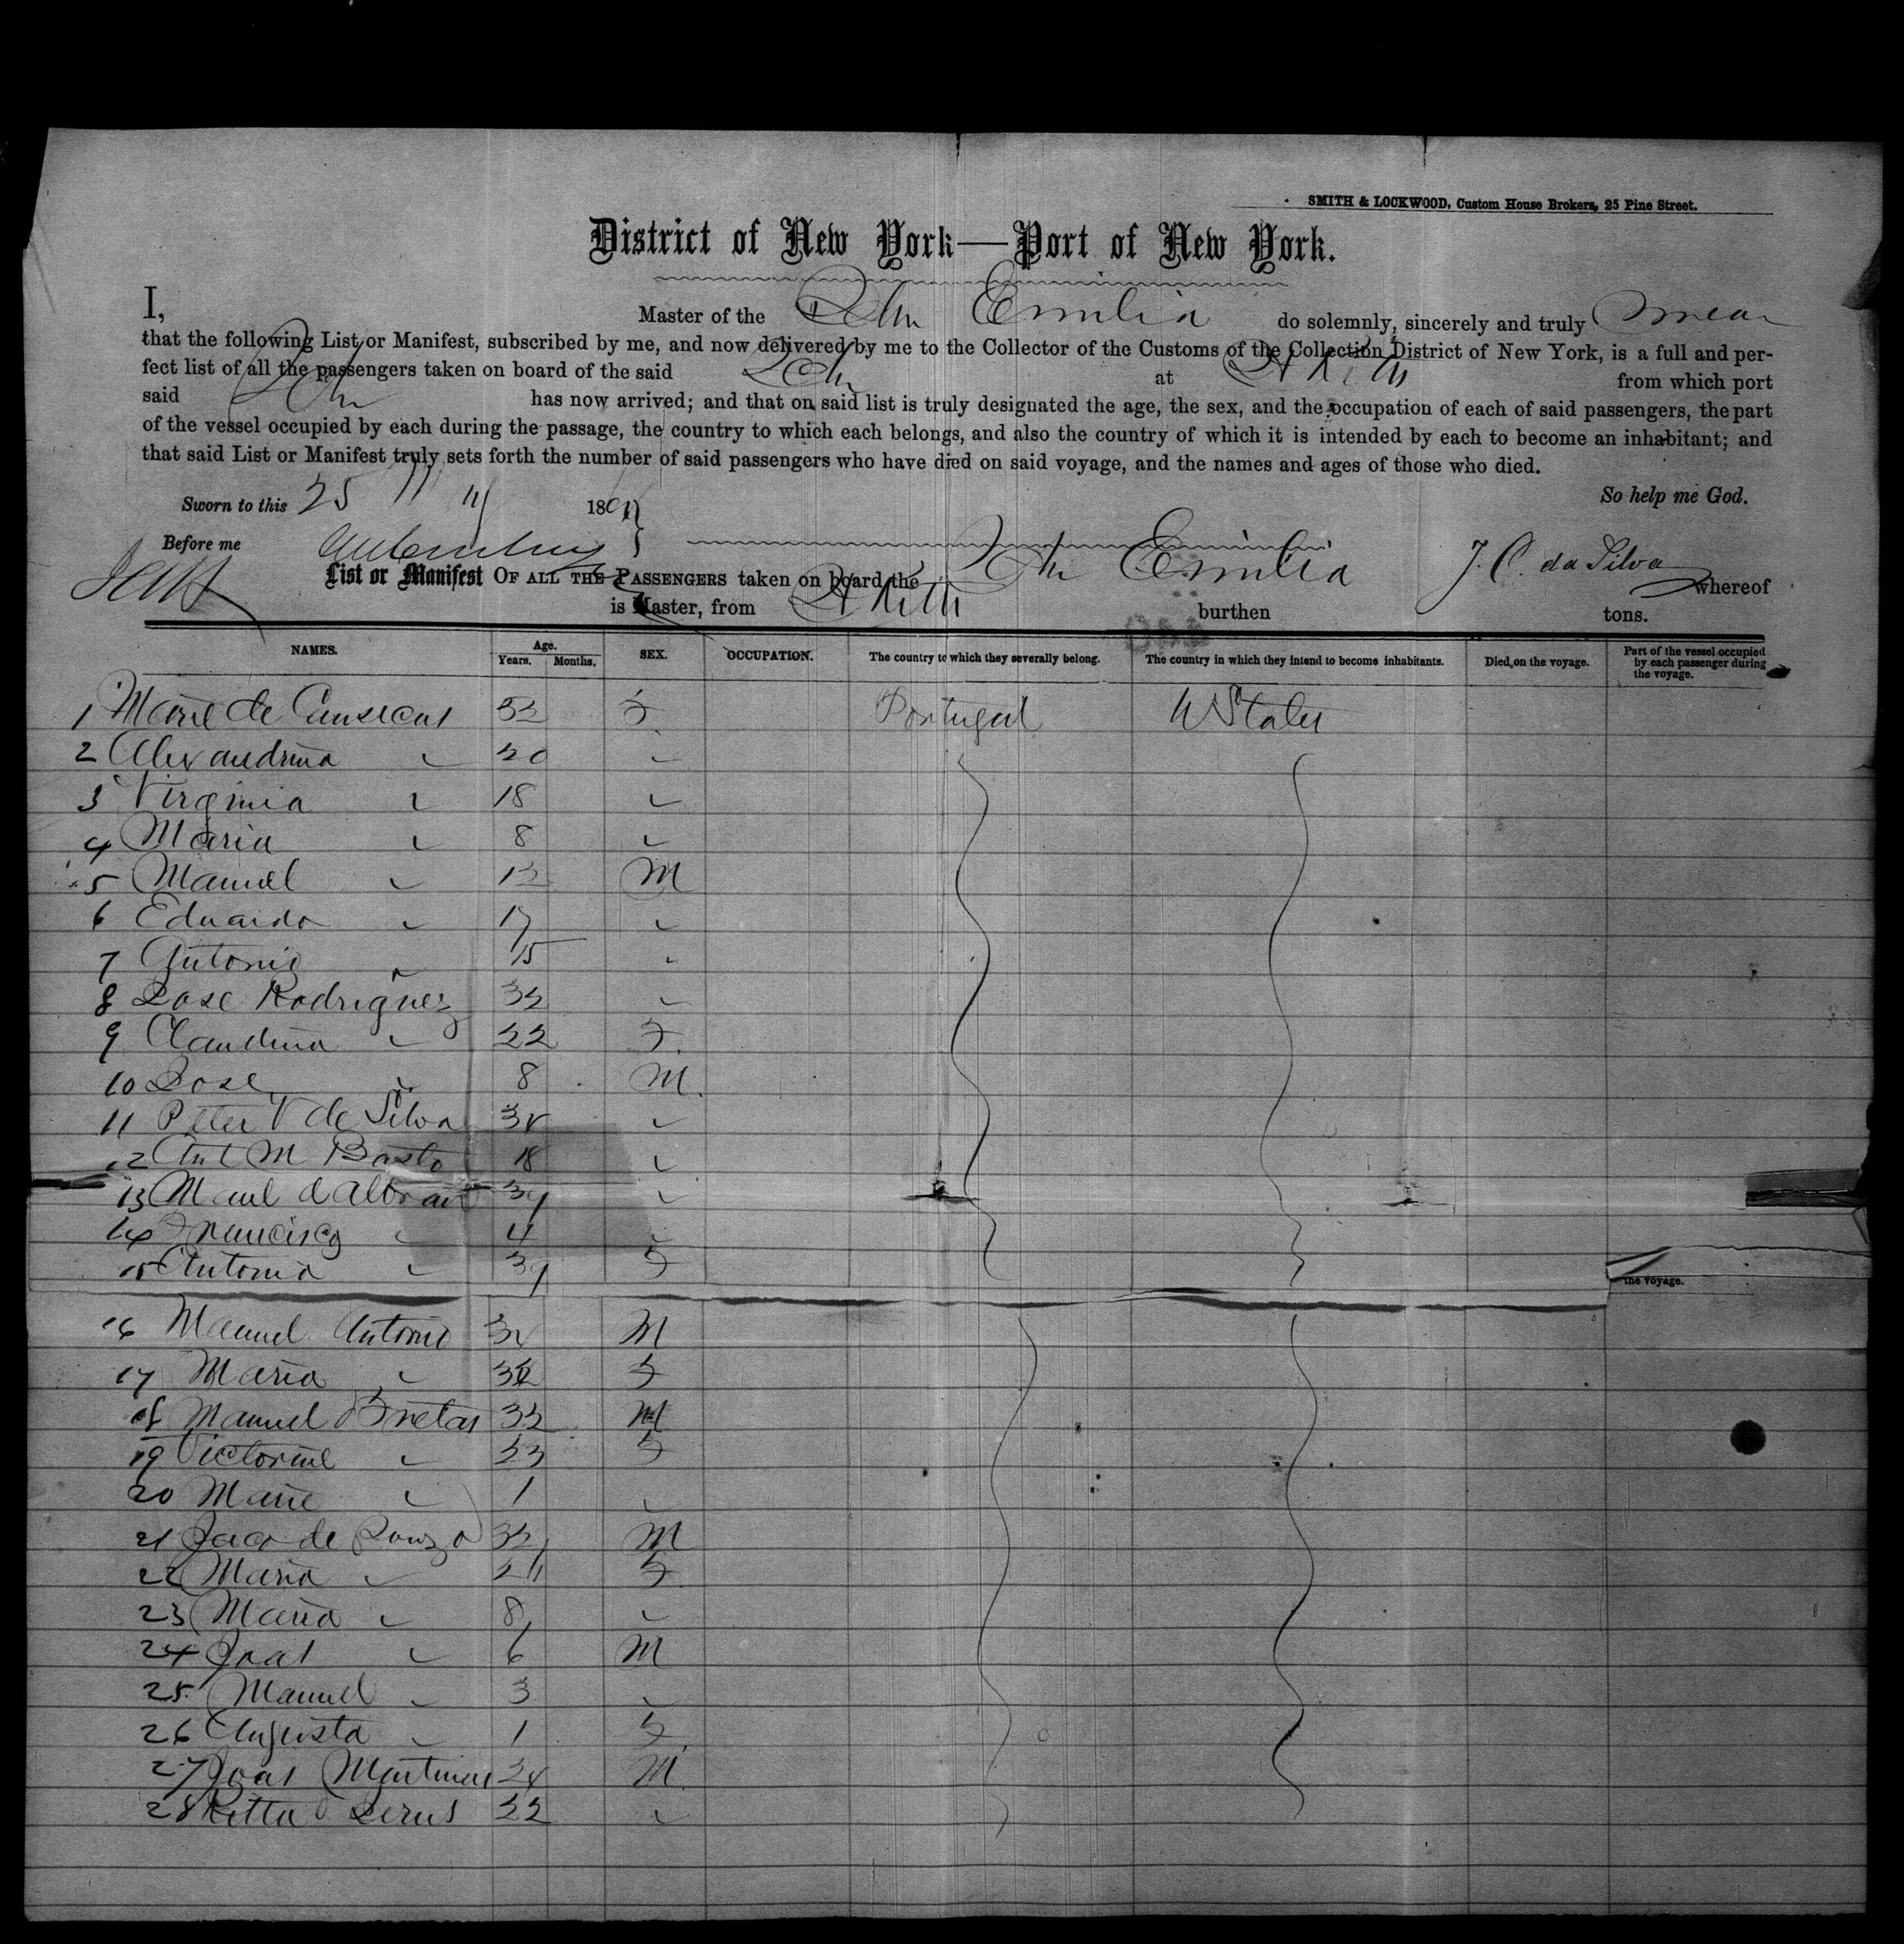 SMITH & LOCKWOOD, Custom House Brokers, 25 Pine Street.
District of New York—Port of New York.
I, Master of the Schr Emilia do solemnly, sincerely and truly swear
that the following List or Manifest, subscribed by me, and now delivered by me to the Collector of the Customs of the Collection District of New York, is a full and per-
fect list of all the passengers taken on board of the said Schr at St Kitts from which port
said Schr has now arrived; and that on said list is truly designated the age, the sex, and the occupation of each of said passengers, the part
of the vessel occupied by each during the passage, the country to which each belongs, and also the country of which it is intended by each to become an inhabitant; and
that said List or Manifest truly sets forth the number of said passengers who have died on said voyage, and the names and ages of those who died.
So help me God.
Sworn to this 25 18
Before me
List or Manifest OF ALL THE PASSENGERS taken on board the Schr Emilia J. C. da Silva whereof
is Master, from St Kitts burthen tons.
NAMES. Age. Years. Months. SEX. OCCUPATION. The country to which they severally belong. The country in which they intend to become inhabitants. Died, on the voyage. Part of the vessel occupied by each passenger during the voyage.
1 Marie de F Portugal U States
2 Alexandrina " 20 "
3 Virginia " 18 "
4 Maria " 8 "
5 Manuel " 13 M
6 Eduardo " 17 "
7 Antonio " 15 "
8 Jose Rodriguez 32 "
9 Claudina " 22 F
10 Jose " 8 M
11 Peter V de Silva "
12 Ant M Basto 18 "
13 "
14 Francisco " 4 "
15 Antonia " F
the voyage.
16 Manuel Antonio M
17 Maria " F
18 Manuel 32 M
19 Victorine " 23 F
20 Marie " 1 "
21 de Souza M
22 Maria " F
23 Maria " 8 "
24 Joas " 6 M
25 Manuel " 3 "
26 Augusta " 1 F
27 Joas 24 M
28 Ritta 22 "